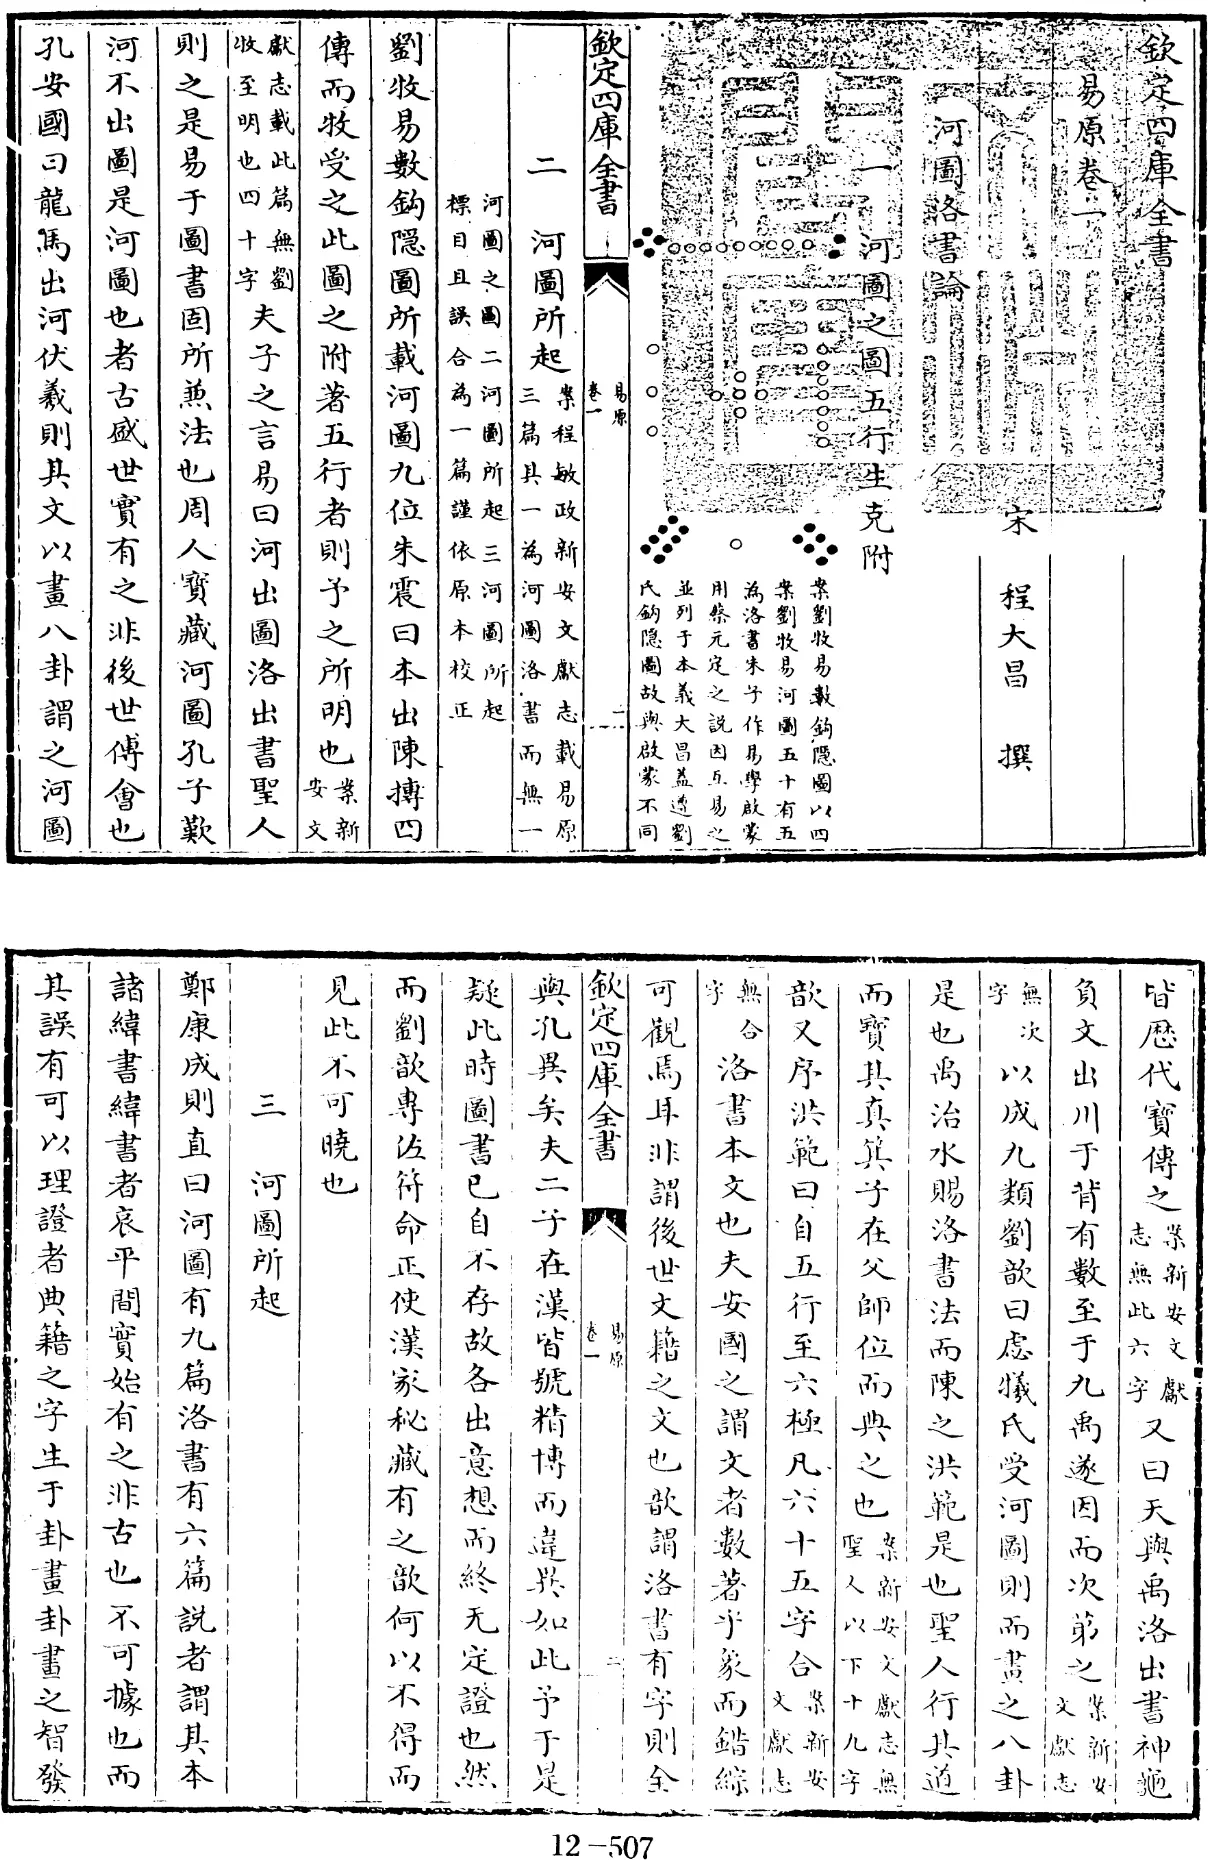 欽定四庫全書
易原卷一
宋 程大昌 撰
河圖洛書論
一 河圖之圖五行生克附
案劉牧易數鈎隱圖以四
案劉牧易河圖五十有五
為洛書朱子作易學啟蒙
用蔡元定之説因互易之
並列于本義大昌蓋遵劉
氏鈎隱圖故與啟蒙不同
欽定四庫全書
易原
卷一
二
二 河圖所起案程敏政新安文獻志載易原
三篇其一為河圖洛書而無一
河圖之圖二河圖所起三河圖所起
標目且誤合為一篇謹依原本校正
劉牧易數鈎隱圖所載河圖九位朱震曰本出陳摶四
傳而牧受之此圖之附著五行者則予之所明也案新
安文
獻志載此篇無劉
牧至明也四十字夫子之言易曰河出圖洛出書聖人
則之是易于圖書固所兼法也周人寳藏河圖孔子歎
河不出圖是河圖也者古盛世實有之非後世傅會也
孔安國曰龍馬出河伏羲則其文以畫八卦謂之河圖
皆歴代寳傳之案新安文獻
志無此六字又曰天與禹洛出書神龜
負文出川于背有數至于九禹遂因而次第之案新安
文獻志
無次
字以成九類劉歆曰虙犧氏受河圖則而畫之八卦
是也禹治水賜洛書法而陳之洪範是也聖人行其道
而寳其真箕子在父師位而典之也案新安文獻志無
聖人以下十九字
歆又序洪範曰自五行至六極凡六十五字合案新安
文獻志
無合
字洛書本文也夫安國之謂文者數著乎象而錯綜
可觀焉耳非謂後世文籍之文也歆謂洛書有字則全
欽定四庫全書
易原
卷一
二
與孔異矣夫二子在漢皆號精博而違異如此予于是
疑此時圖書已自不存故各出意想而終无定證也然
而劉歆專佐符命正使漢家秘藏有之歆何以不得而
見此不可曉也
三 河圖所起
鄭康成則直曰河圖有九篇洛書有六篇説者謂其本
諸緯書緯書者哀平間實始有之非古也不可據也而
其誤有可以理證者典籍之字生于卦畫卦畫之智發
12-507